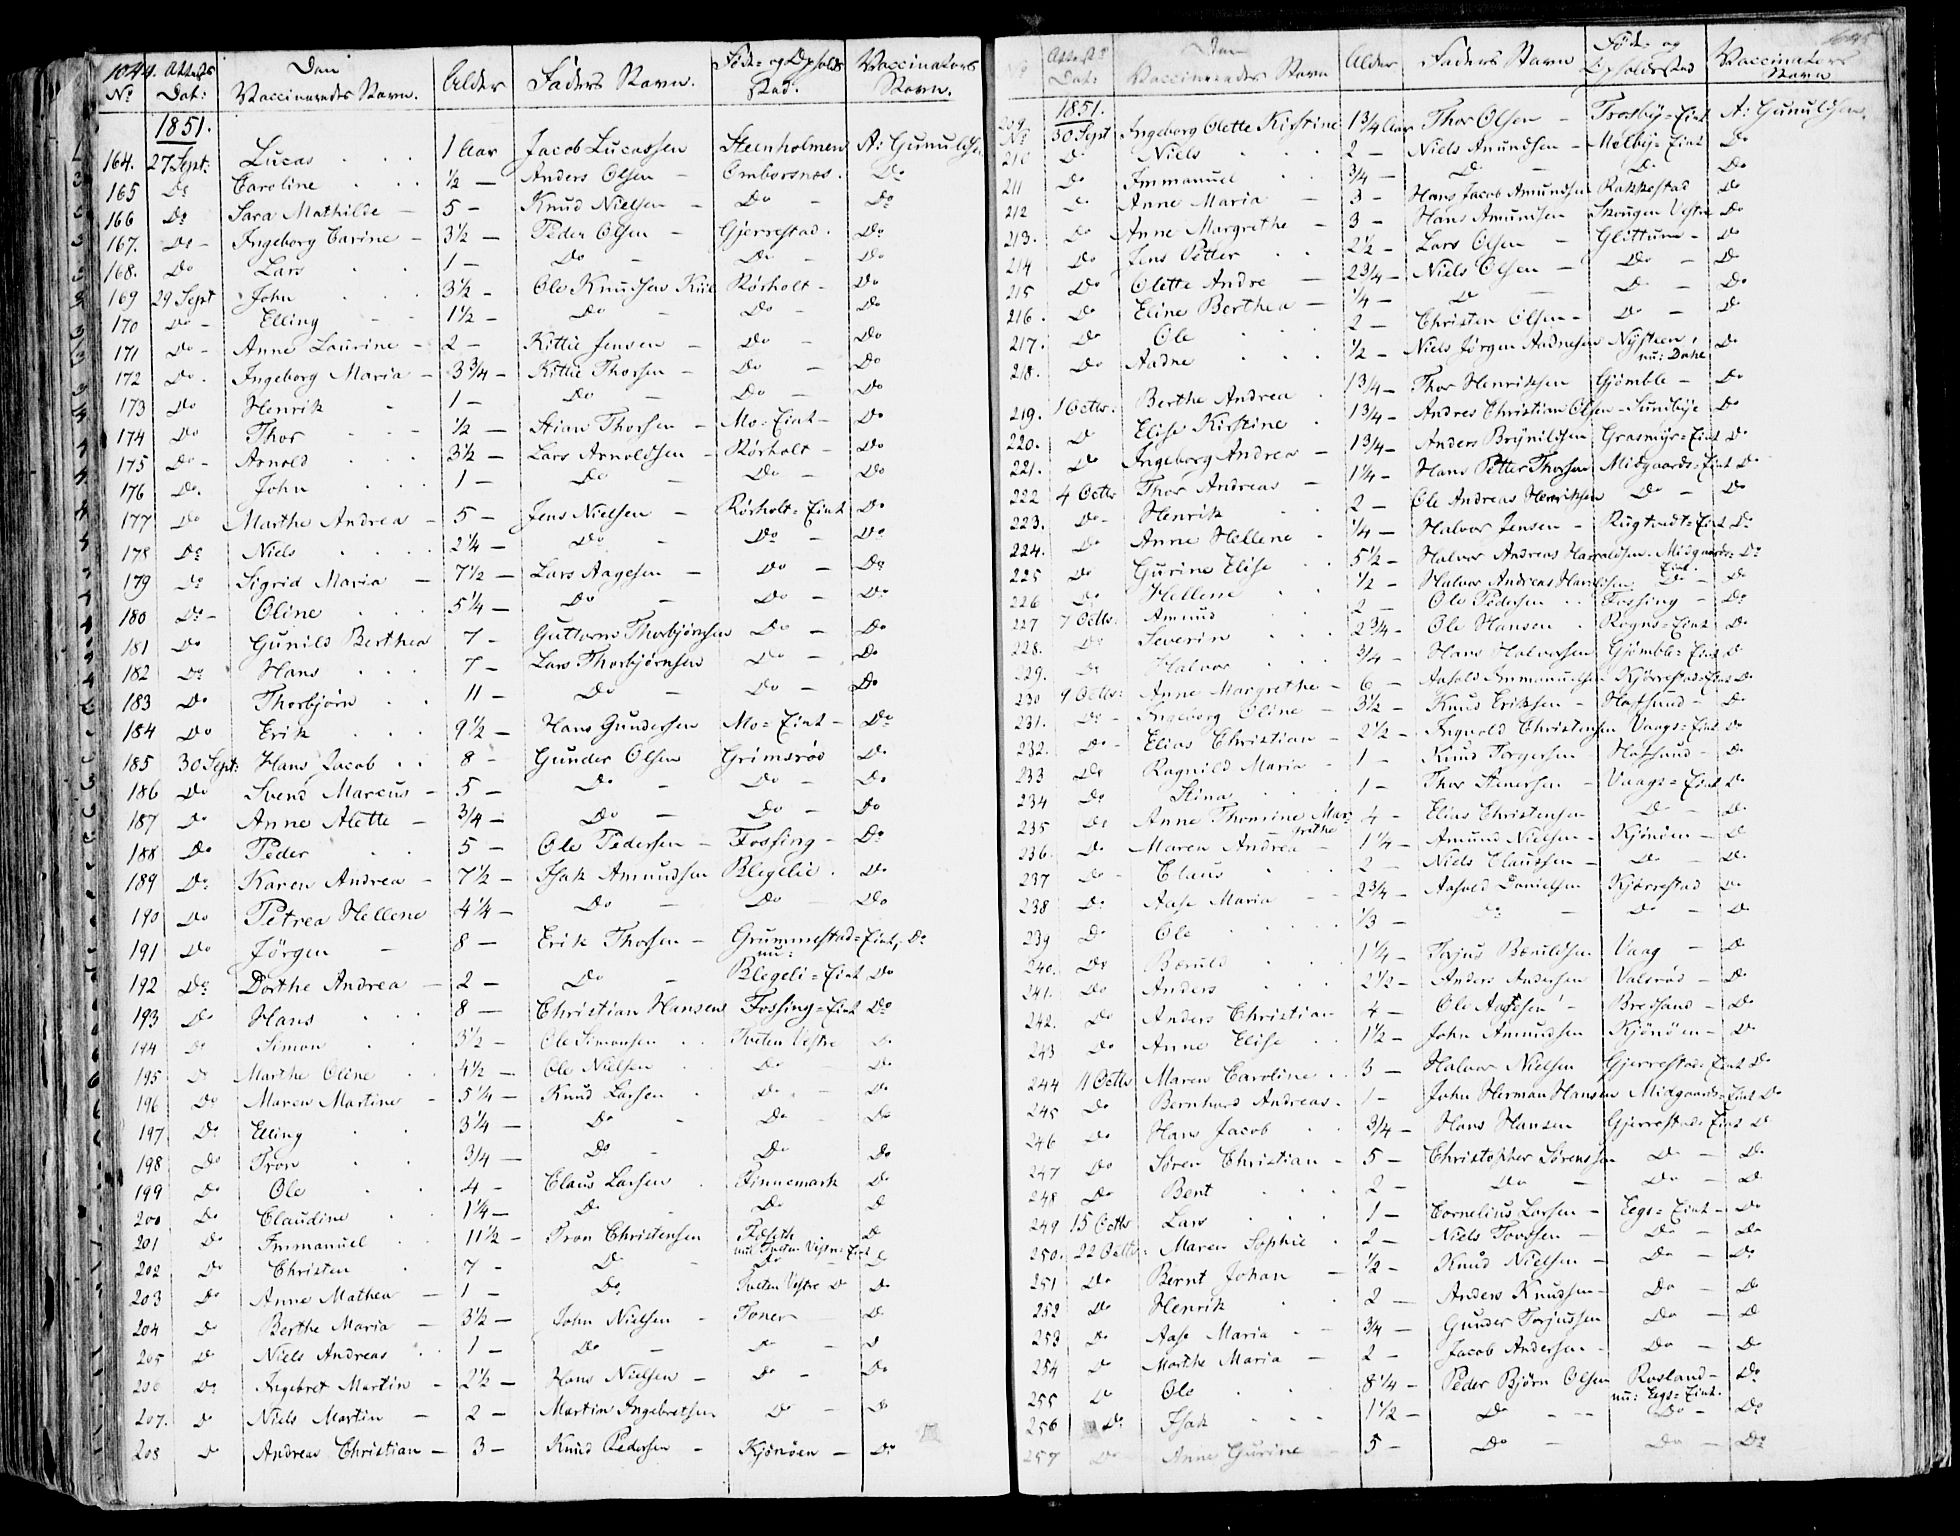 1044.
No | Attests Dat: | Den Vaccineredes Navn. | Alder | Faders Navn. | Føde- og Opholds Sted. | Vaccinateurs Navn.
1851.
164. 27 Sept: Lucas 1 Aar Jacob Lucassen Steenholmen A: Gunulfsen
165 Do Caroline ½ — Anders Olsen — Omborsnes. Do
166 Do Sara Mathilde — 5 — Knud Nielsen — Do — Do
167. Do — Ingeborg Carine — 3½ — Peder Olsen — Gjerrestad. Do
168. Do Lars 1 — Do — Do — Do
169 29 Sept John 3½ — Ole Knudsen Rørholt — Do
170 Do — Elling — 1½ — Do — Do — Do
171 Do — Anne Laurine — 2 — Kittil Jensen — Do — Do
172 Do. Ingeborg Maria — 3¾ — Kittil Thorsen — Do — Do
173 Do Henrik — 1 — Do — Do — Do
174 Do Thor ½ — Stian Thorsen — Mo-Eiet — Do
175 Do — Arnold 3½ — Lars Arnoldsen — Rørholt — Do
176 Do. John 1 — Do — Do — Do
177 Do Marthe Andrea — 5 — Jens Nielsen — Rørholt-Eiet Do
178 Do Niels 2¼ — Do — Do — Do
179 Do Sigrid Maria — 7½ — Lars Aagesen — Do — Do
180 Do — Oline 5¼ — Do — Do — Do
181 Do Gunild Berthea 7 — Guttorm Thorbjørnsen Do — Do
182 Do Hans 7 — Lars Thorbjørnsen Do — Do
183 Do Thorbjørn 11 — Do — Do — Do
184 Do Erik 9½ — Hans Gundersen Mo-Eiet — Do
185 30 Sept: Hans Jacob 8 — Gunder Olsen Grimsrød Do
186 Do Svend Marcus — 5 — Do — Do — Do
187 Do Anne Alette — ¾ — Do — Do — Do
188 Do Peder 5 — Ole Pedersen — Fossing — Do
189 Do Karen Andrea — 7½ — Isak Amundsen Blegelie. Do
190 Do Petrea Hellene 4¼ — Do — Do — Do
191 Do Jörgen — 8 — Erik Thorsen — Grummestad-Eiet, Do
nu:
192 Do Dorthe Andrea — 2 — Do — Blegeli-Eiet Do
193 Do Hans 8 — Christian Hansen Fossing-Eiet Do
194 Do Simon 3½ — Ole Simonsen Tveten Vestre Do
195 Do Marthe Oline 4½ — Ole Nielsen Do — Do
196 Do Maren Martine — 5¼ — Knud Larsen Do — Do
197 Do Elling 3¼ — Do — Do — Do
198 Do Tron ¾ — Do — Do Do
199 Do Ole 4 — Claus Larsen Finnemark Do
200 Do Claudine 1¼ — Do — Do Do
201 Do Immanuel 11½ — Tron Christensen Do
nu: Tveten Vestre-Eiet
202 Do Christen 7 — Do Do Do
203 Do Anne Mathea — 1 — Do Tveten Vestre Do Do
204 Do Berthe Maria — 3½ — John Nielsen — Toner — Do
205 Do Niels Andreas 1 — Do — Do — Do
206 Do Ingebret Martin — 2½ — Hans Nielsen — Do — Do
207. Do Niels Martin — 2 — Martin Ingebretsen Do — Do
208 Do Andreas Christian — 3 — Knud Pedersen — Kjönöen — Do
1045
No | Attests Dat: | Den Vaccineredes Navn | Alder | Faders Navn | Føde- og Opholdssted | Vaccinateurs Navn
1851.
209 30 Sept Ingeborg Olette Kirstine 1¾ Aar Thor Olsen — Trosby-Eiet A: Gunulfsen.
210 Do Niels 2 — Niels Amundsen — Melby-Eiet Do
211 Do Immanuel ¾ — Do — Do Do
212 Do Anne Maria — 3 — Hans Jacob Amundsen Rakkestad Do
213. Do Anne Margrethe — 3 — Hans Amundsen Skougen Vestre Do
214 Do Jens Petter 2½ — Lars Olsen — Glittum — Do
215 Do Olette Andre — 2¾ — Niels Olsen — Do — Do
216. Do Eline Berthea — ¼ — Do — Do — Do
217. Do Ole 2 — Christen Olsen — Do — Do
218. Do Aadne ½ — Niels Jörgen Aadnesen Nysteen, Do
nu: Dahl
219. 1 Octbr. Berthe Andrea 1¾ — Thor Henriksen Gjömble — Do
220. Do Elise Kirstine 1¾ — Andres Christian Olsen — Sundbye Do
221. Do Ingeborg Andrea — 1¾ — Anders Brynildsen Grasmyr-Eiet Do
222 4 Octbr Thor Andreas — 1¼ — Hans Petter Thorsen Midgaards-Eiet Do
223. Do — Henrik 2 — Ole Andreas Henriksen Do — Do
224. Do Anne Hellene ¼ — Halvor Jensen — Rugtvedt-Eiet Do
225 Do Gurine Elise 5½ — Halvor Andreas Haraldsen. Midgaards- Do
Eiet
226 Do Hellene ½ — Halvor Andreas Haraldsen Do — Do
227 7 Octbr: Amund 2 — Ole Pedersen Fossing — Do
228. Do Severin 2¾ — Ole Hansen Rogns-Eiet Do
229. Do Halvor ¾ — Hans Halvorsen Gjömble-Eiet Do
230 9 Octbr: Anne Margrethe — 6 — Immanuelsen Kjørrestad-Eiet Do
231. Do — Ingeborg Oline — 3½ — Knud Eriksen — Hafsund — Do
232. Do — Elias Christian — 2½ — Ingvald Christensen Vaags-Eiet Do
233 Do Ragnild Maria — 1 — Knud Torgersen — Hafsund — Do
234 Do Stina 1 — Thor Stenersen — Vaags-Eiet Do
235 Do Anne Thonrine Mar- 4 — Elias Christensen Do — Do
grethe
236. Do Maren Andrea — 1¼ — Amund Nielsen — Kjönöen — Do
237 Do — Claus 2 — Niels Claussen — Do — Do
238 Do Aase Maria — 2¾ — Aasold Danielsen Kjørrestad Do
239 Do Ole ⅓ — Do — Do — Do
240. Do Bærulf 1¼ — Torjus Bærulfsen Vaag — Do
241. Do Anders 2½ — Anders Andersen Valsrød — Do
242. Do Anders Christian 4 — Ole — Bredsand — Do
243 Do Anne Elise 1½ — John Amundsen Kjönöen — Do
244 11 Octbr Maren Caroline 3 — Halvor Nielsen Gjerrestad-Eiet Do
245 Do Bernhard Andreas. 1 — John Herman Hansen Midgaards-Eiet Do
246 Do Hans Jacob ¾ — Hans Hansen Gjerrestad-Eiet Do
247 Do Sören Christian — 5 — Christopher Sörensen Do — Do
248 Do Bent 2 — Do — Do — Do
249 15 Octbr Lars 1 — Cornelius Larsen — Eegs-Eiet — Do
250. 22 Octbr: Maren Sophie 2 — Niels Tovsen — Do — Do
251 Do Bernt Johan — ½ — Knud Nielsen — Do — Do
252 Do Henrik 2 — Anders Knudsen — Do — Do
253 Do Aase Maria — ¾ — Gunder Torjussen Do — Do
254 Do Marthe Maria — 2 — Jacob Andersen — Do — Do
255 Do Ole 8¼ — Peder Björn Olsen Rosland — Do
nu: Eegs-Eiet.
256 Do Isak 1½ — Do — Do — Do
257 Do Anne Gurine 5 — Do — Do — Do